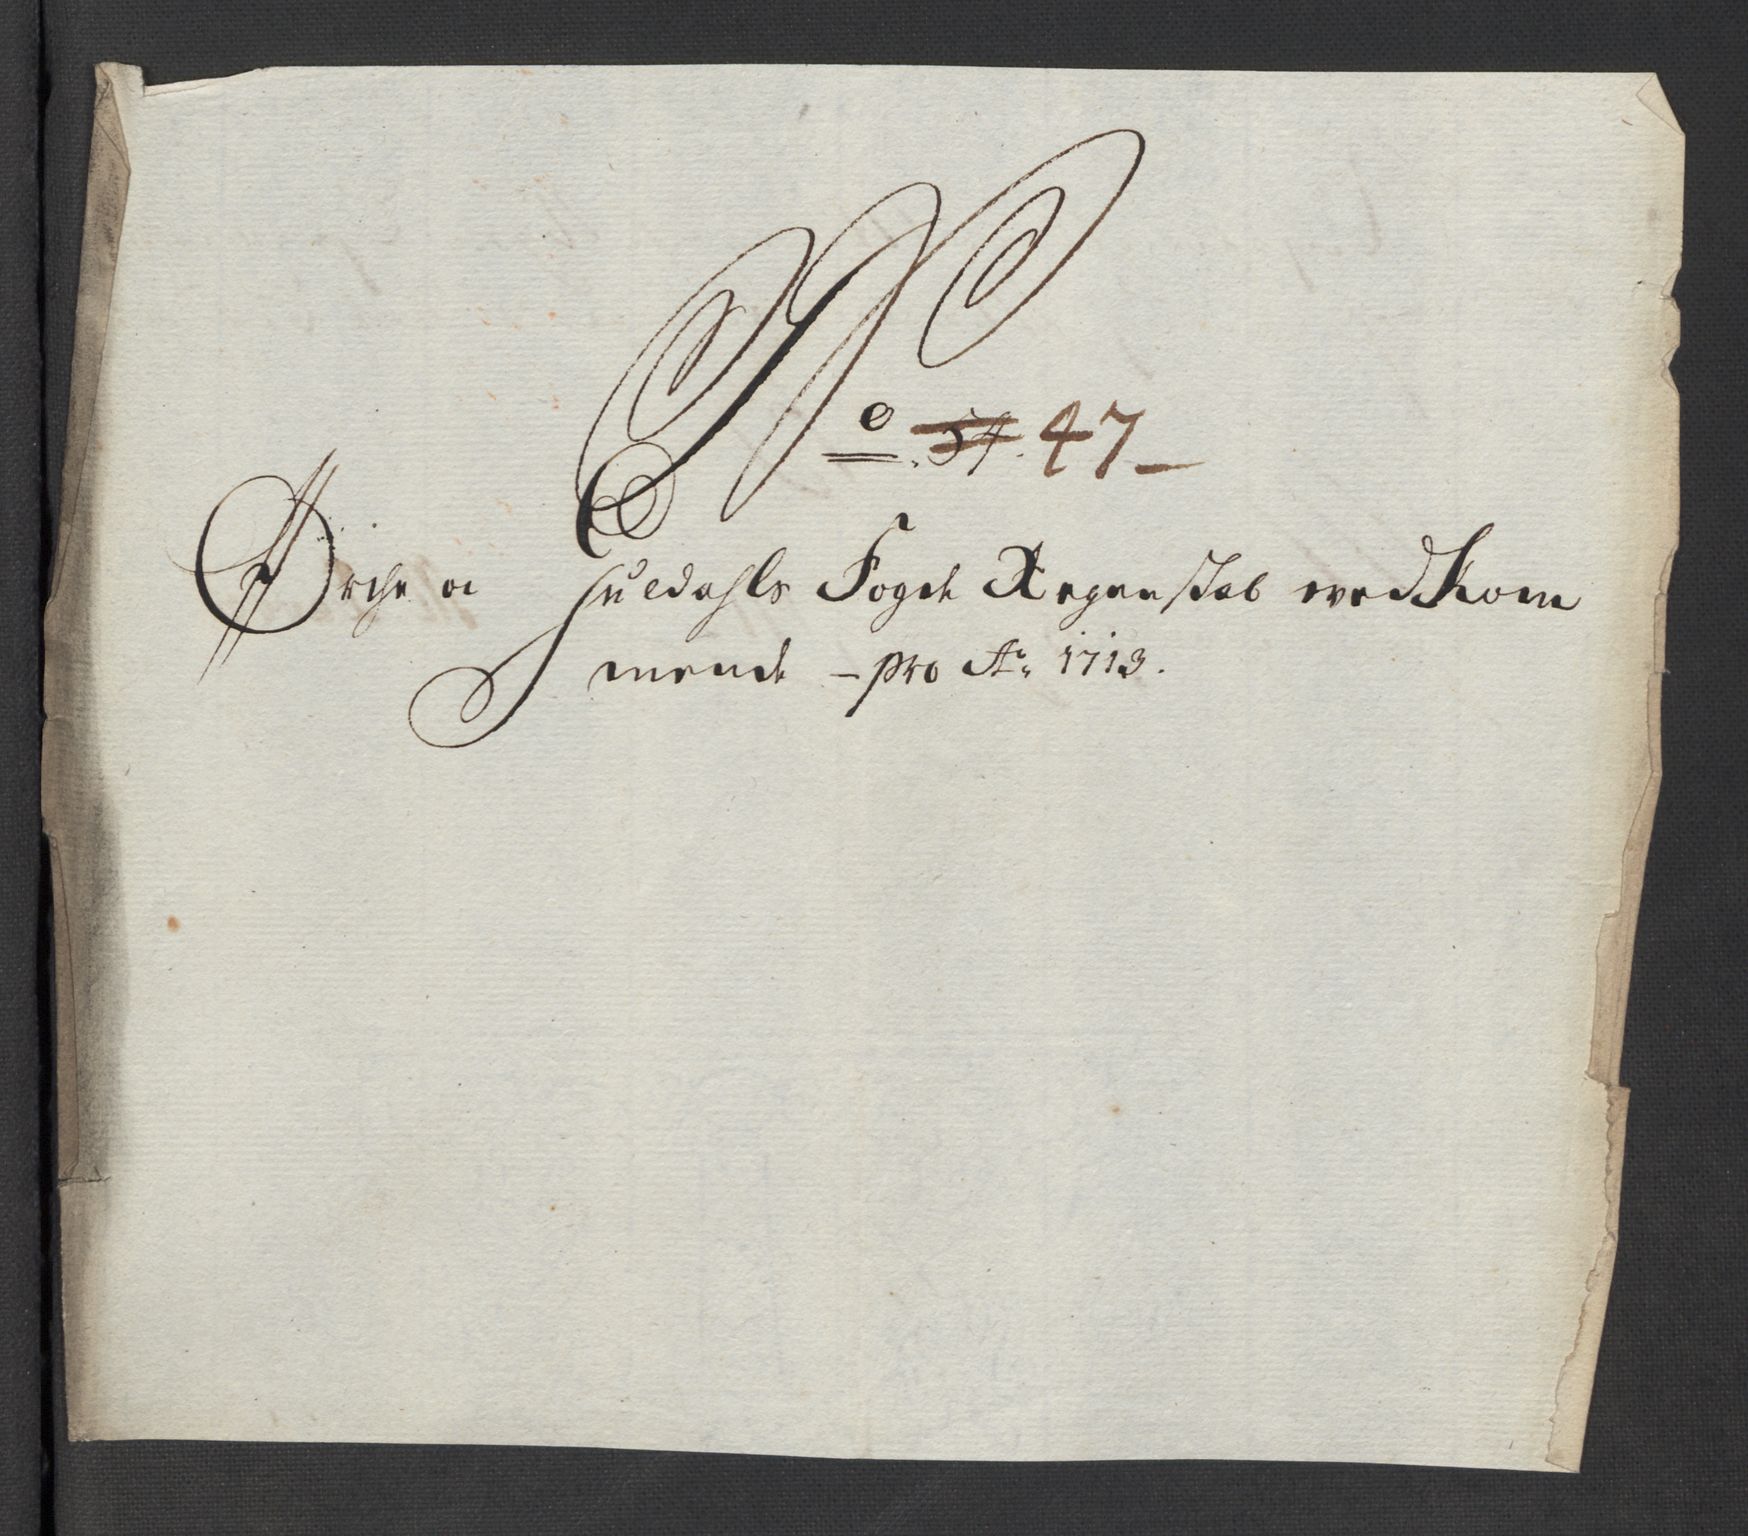 No 54. 47
Ørche og Guldahls Fogde Regenskab vedkom
mende – pro Ao 1713.